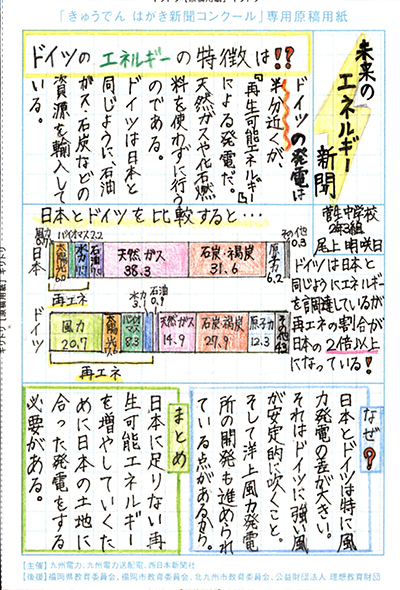 「きゅうでん はがき新聞コンクール」専用原稿用紙
未来の
エネルギー
新聞
菅生中学校
2年3組
尾上 明咲日
ドイツのエネルギーの特徴は!!
ドイツの発電は
半分近くが
『再生可能エネルギー』
による発電だ。
天然ガスや化石燃
料を使わずに行う
のである。
ドイツは日本と
同じように、石油
ガス・石炭などの
資源を輸入して
いる。
日本とドイツを比較すると…
日本
バイオマス2.2
水力
石油
天然ガス
38.3
石炭・褐炭
31.6
原子力
6.2
その他
0.3
再エネ
ドイツ
風力
20.7
バイオマス
8.3
水力
3.1
石油
0.9
天然ガス
14.9
石炭・褐炭
27.9
原子力
12.3
その他
再エネ
ドイツは日本と
同じようにエネルギー
を調達しているが
再エネの割合が
日本の2倍以上
になっている!
なぜ?
日本とドイツは特に風
力発電の差が大きい。
それはドイツに強い風
が安定的に吹くこと。
そして洋上風力発電
所の開発も進められ
ている点があるから。
まとめ
日本に足りない再
生可能エネルギー
を増やしていくた
めに日本の土地に
合った発電をする
必要がある。
【主催】九州電力、九州電力送配電、西日本新聞社
【後援】福岡県教育委員会、福岡市教育委員会、北九州市教育委員会、公益財団法人 理想教育財団
キリトリ